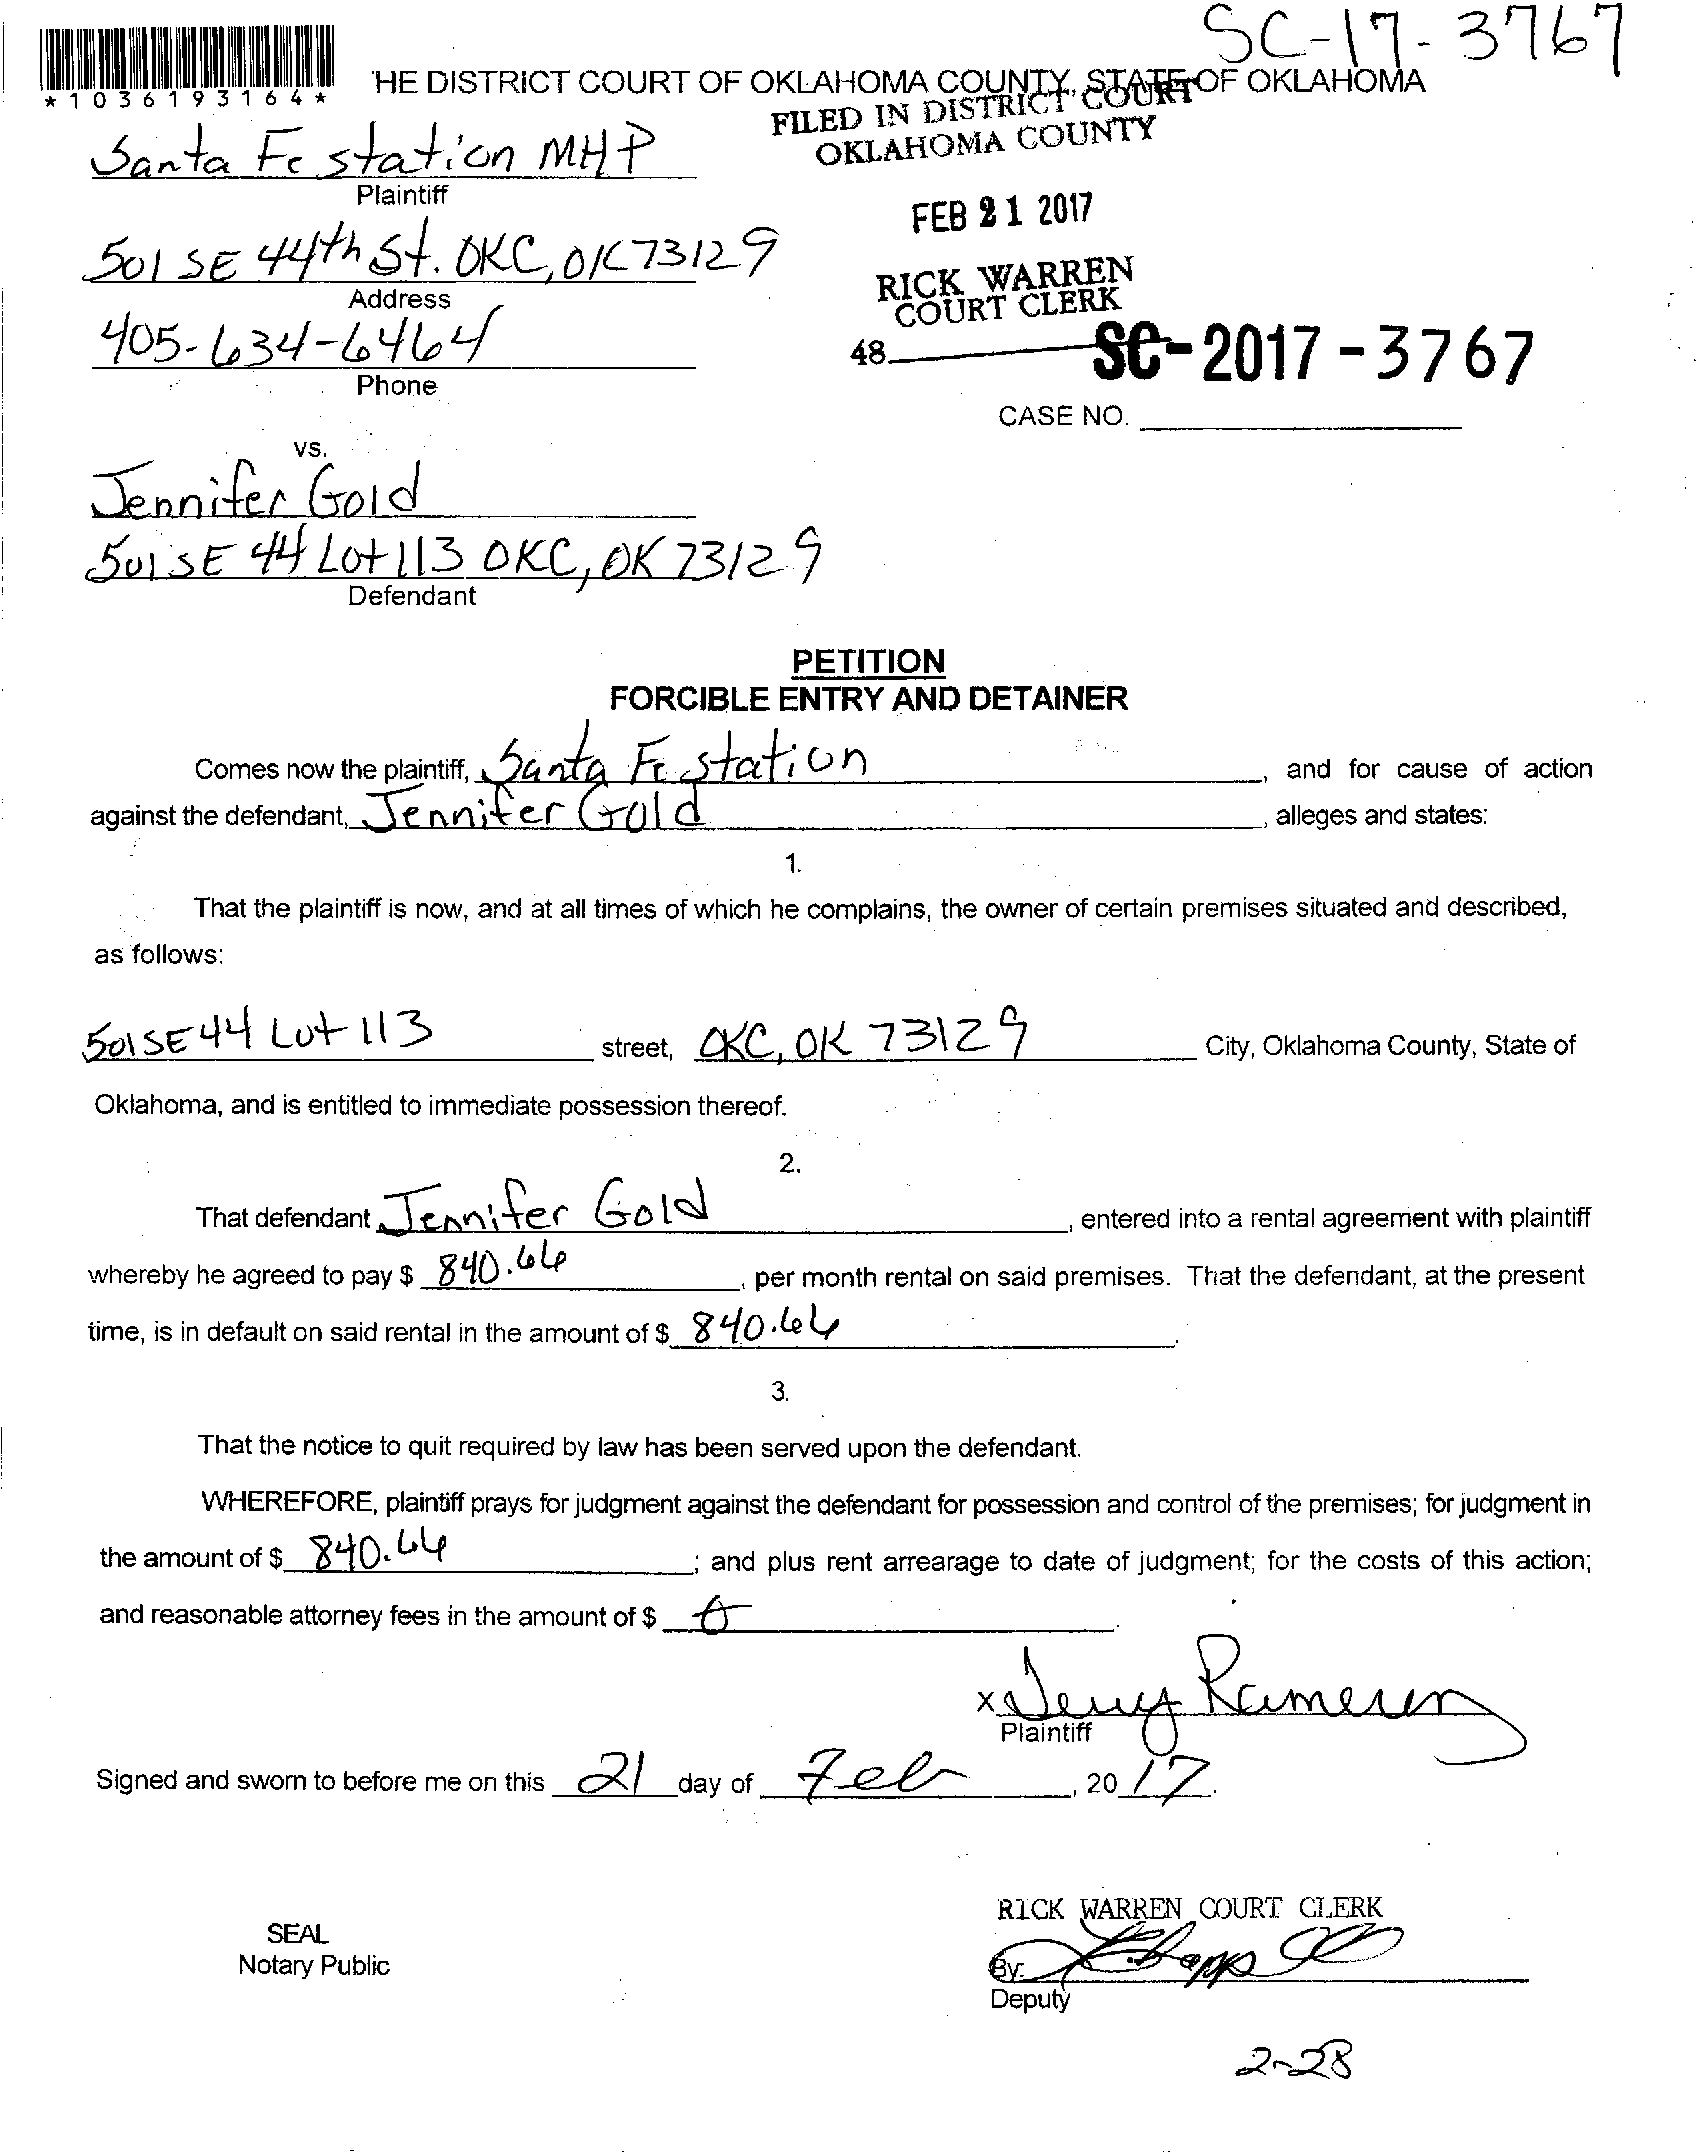 SC-17-3767
*1036193164*
HE DISTRICT COURT OF OKLAHOMA COUNTY, STATE OF OKLAHOMA
FILED IN DISTRICT COURT
OKLAHOMA COUNTY
Santa Fe station MHP
Plaintiff
FEB 21 2017
501 SE 44th St. OKC, OK 73129
Address
RICK WARREN
COURT CLERK
405-634-6464
Phone
48
SC-2017-3767
CASE NO.
vs.
Jennifer Gold
501 SE 44 Lot 113 OKC, OK 73129
Defendant
PETITION
FORCIBLE ENTRY AND DETAINER
Comes now the plaintiff, Santa Fe station, and for cause of action
against the defendant, Jennifer Gold, alleges and states:
1.
That the plaintiff is now, and at all times of which he complains, the owner of certain premises situated and described,
as follows:
501 SE 44 Lot 113 street, OKC, OK 73129 City, Oklahoma County, State of
Oklahoma, and is entitled to immediate possession thereof.
2.
That defendant Jennifer Gold, entered into a rental agreement with plaintiff
whereby he agreed to pay $ 840.66, per month rental on said premises. That the defendant, at the present
time, is in default on said rental in the amount of $ 840.66.
3.
That the notice to quit required by law has been served upon the defendant.
WHEREFORE, plaintiff prays for judgment against the defendant for possession and control of the premises; for judgment in
the amount of $ 840.66; and plus rent arrearage to date of judgment; for the costs of this action;
and reasonable attorney fees in the amount of $ 0.
x
Plaintiff
Signed and sworn to before me on this 21 day of Feb, 2017.
RICK WARREN COURT CLERK
SEAL
Notary Public
By:
Deputy
2-28